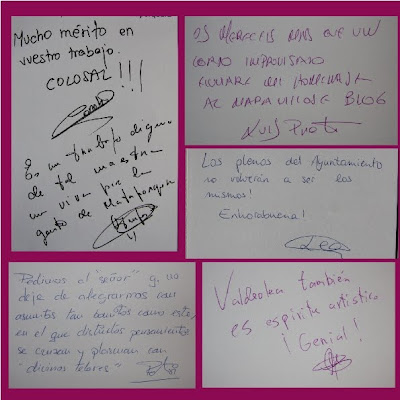 Mucho mérito en
vuestro trabajo.
COLOSAL!!!
Es un trabajo digno
de tal maestra
un viva por la
gente de
OS MERECEIS MAS QUE UN
CORTO IMPROVISADO
FIRMARE EN HOMENAJE
AL MARAVILLOSO BLOG
Los plenos del Ayuntamiento
no volverán a ser los
mismos!
Enhorabuena!
Lea
Pedimos al "señor" q. no
deje de alegrarnos con
asuntos tan bonitos como este,
en el que distintos pensamientos
se cruzan y plasman con
"diversas labores"
Valdeolea también
es espíritu artístico
¡Genial!